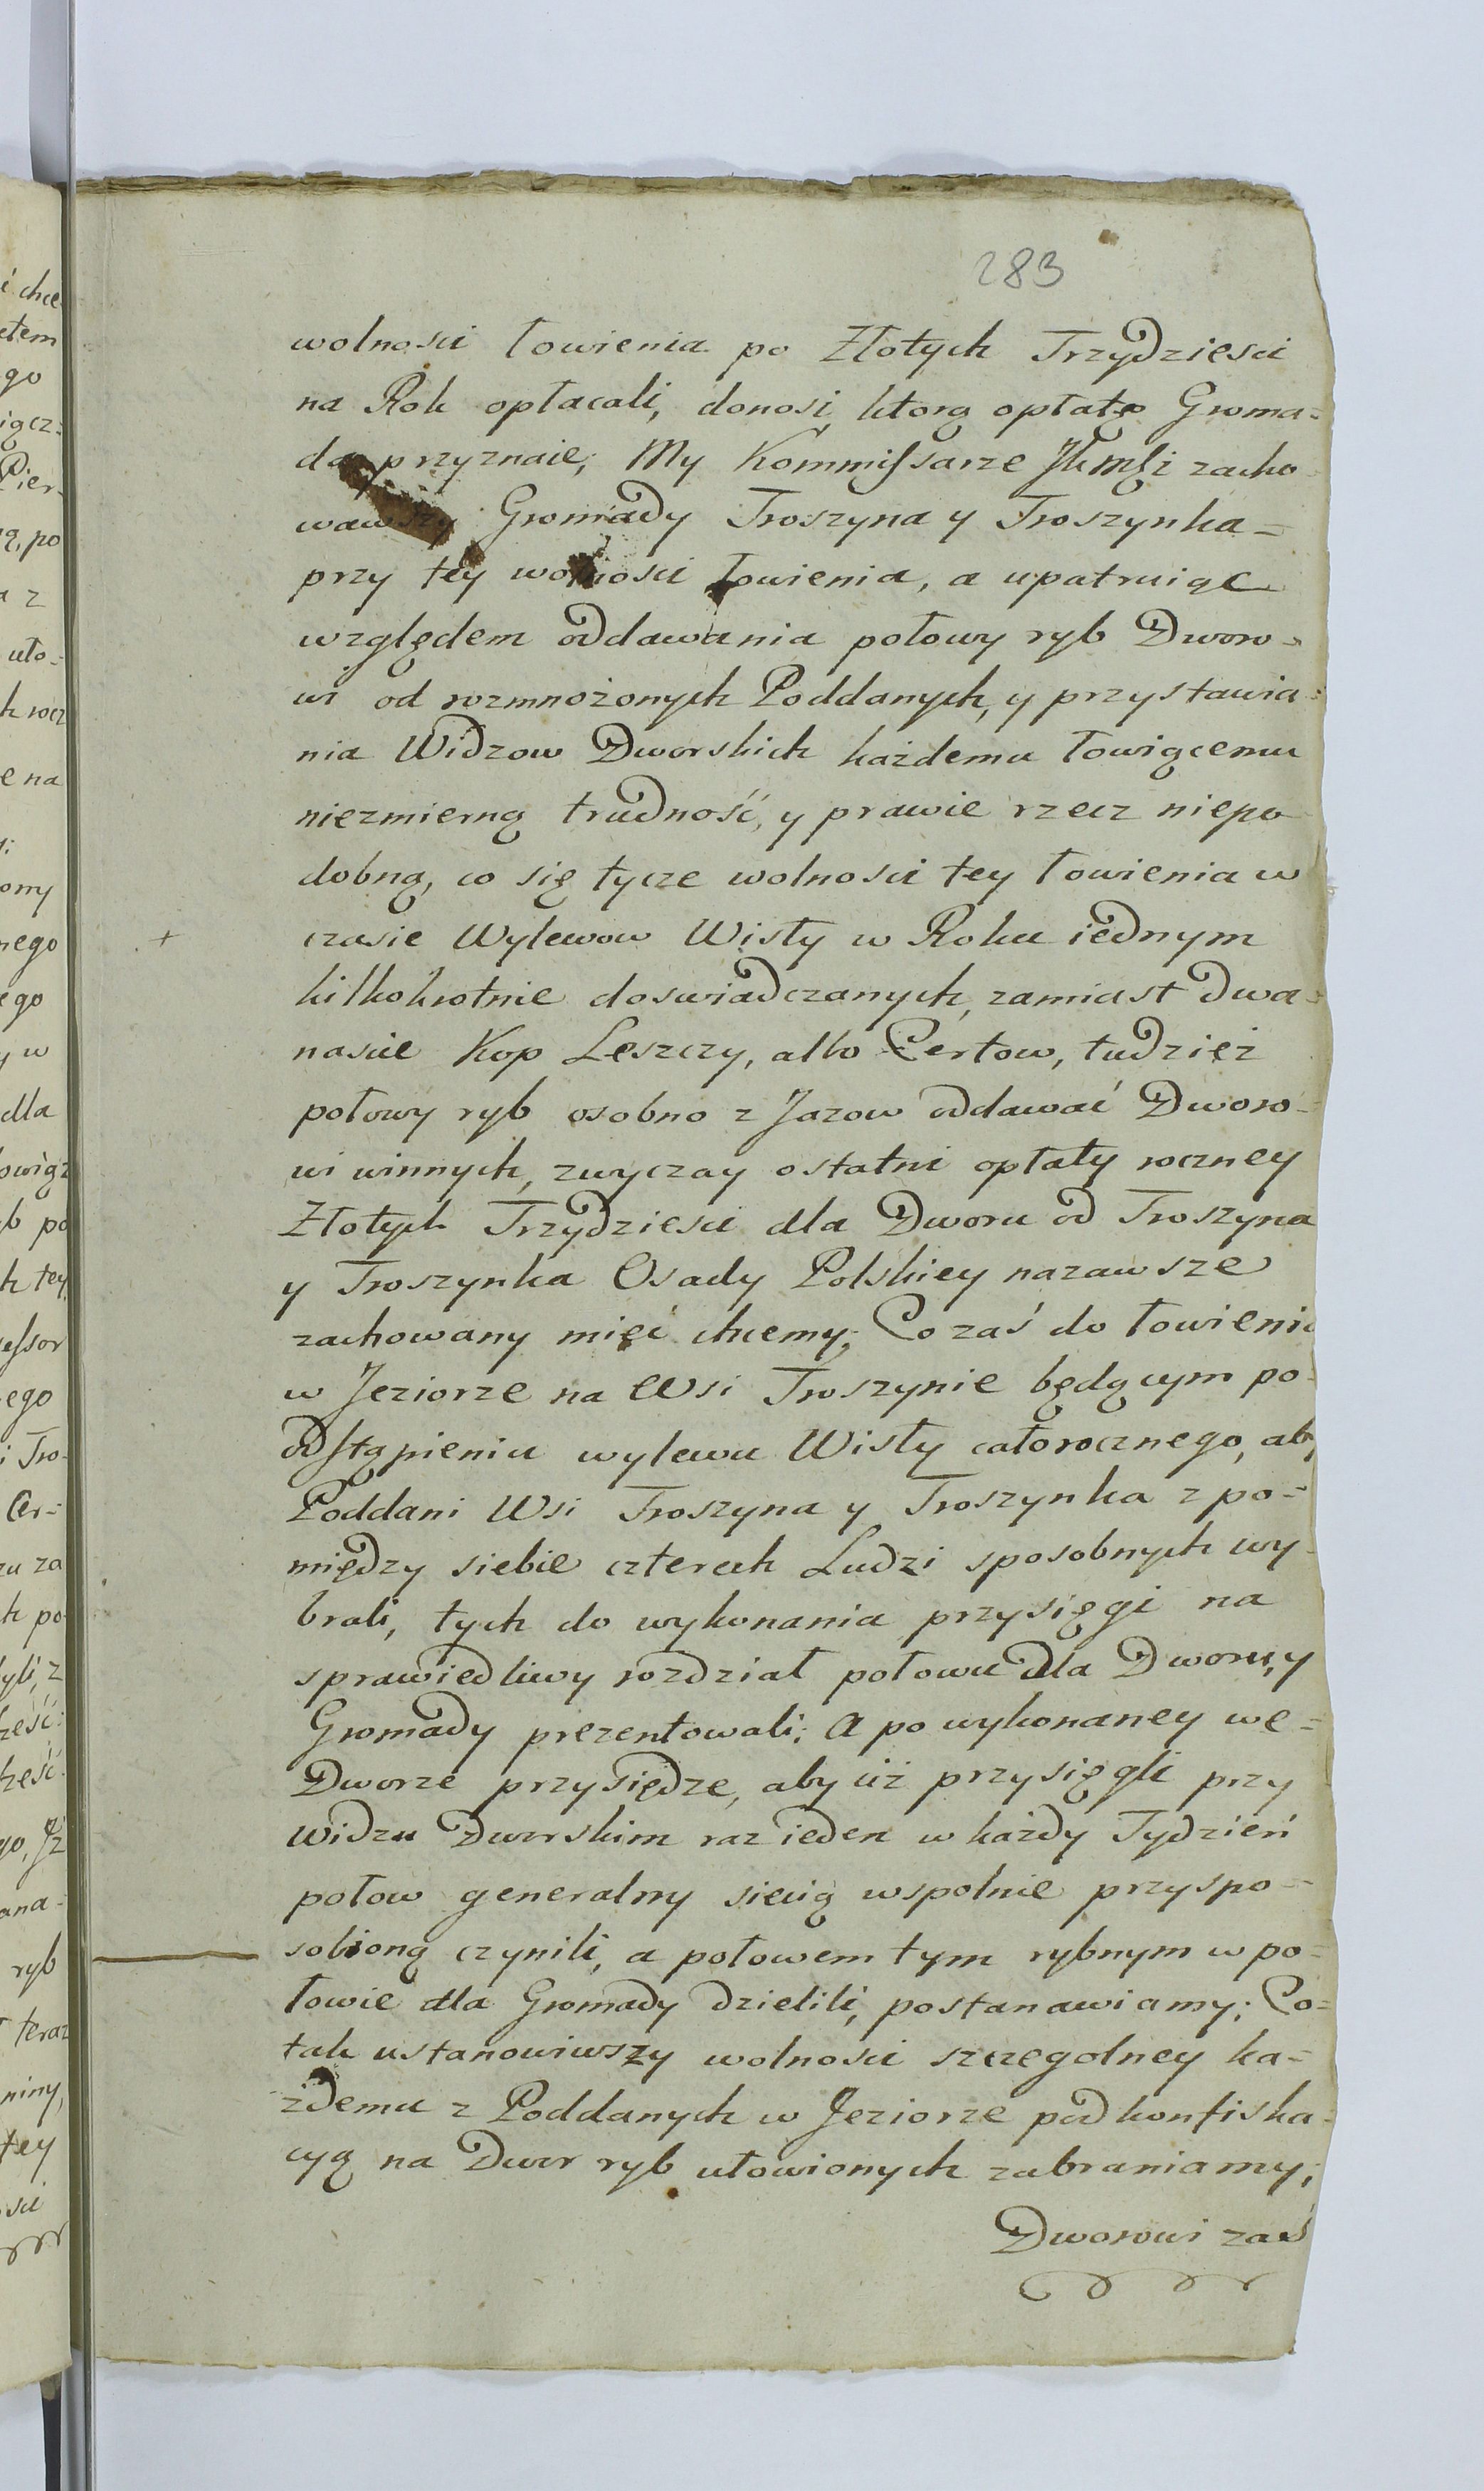 283
wolnosci łowienia po Złotych Trzydziesci
na Rok opłacali, donosi, ktorą opłatę Groma=
da przyznaie; My Kommissarze JKMśći zacho
wawszy Gromady Troszyna y Troszynka=
przy tey wolnosci łowienia, a upatruiąc
względem oddawania połowy ryb Dworo=
wi od rozmnożonych Poddanych, y przystawia=
nia Widzow Dworskich każdemu łowiącemu
niezmierną trudność, y prawie rzecz niepo
dobną, co się tycze wolnosci tey łowienia w
+ czasie Wylewow Wisły w Roku iednym
kilkokrotnie doswiadczanych, zamiast dwa=
nascie Kop Leszczy, albo Certow, tudzież
połowy ryb osobno z Jazow oddawać Dworo=
wi winnych, zwyczay ostatni opłaty roczney
Złotych Trzydziesci dla Dworu od Troszyna
y Troszynka Osady Polskiey nazawsze
zachowany mieć chcemy; Co zaś do łowienia
w Jeziorze na Wsi Troszynie będącym po
odstąpieniu wylewu Wisły całorocznego, aby
Poddani Wsi Troszyna y Troszynka z po=
między siebie czterech Ludzi sposobnych wy
brali, tych do wykonania przysięgi na
sprawiedliwy rozdział połowu dla Dworu, y
Gromady prezentowali; A po wykonaney we=
Dworze przysiędze, aby ciż przysięgli przy
Widzu Dwrskim raz ieden w każdy Tydzień
połow generalny siecią wspolnie przyspo=
sobioną czynili, a połowem tym rybnym w po=
łowie dla Gromady dzielili, postanawiamy; Co=
tak ustanowiwszy wolnosci szczegolney ka=
żdemu z Poddanych w Jeziorze pod konfiska=
cyą na Dwor ryb ułowionych zabraniamy;
Dworowi zaś